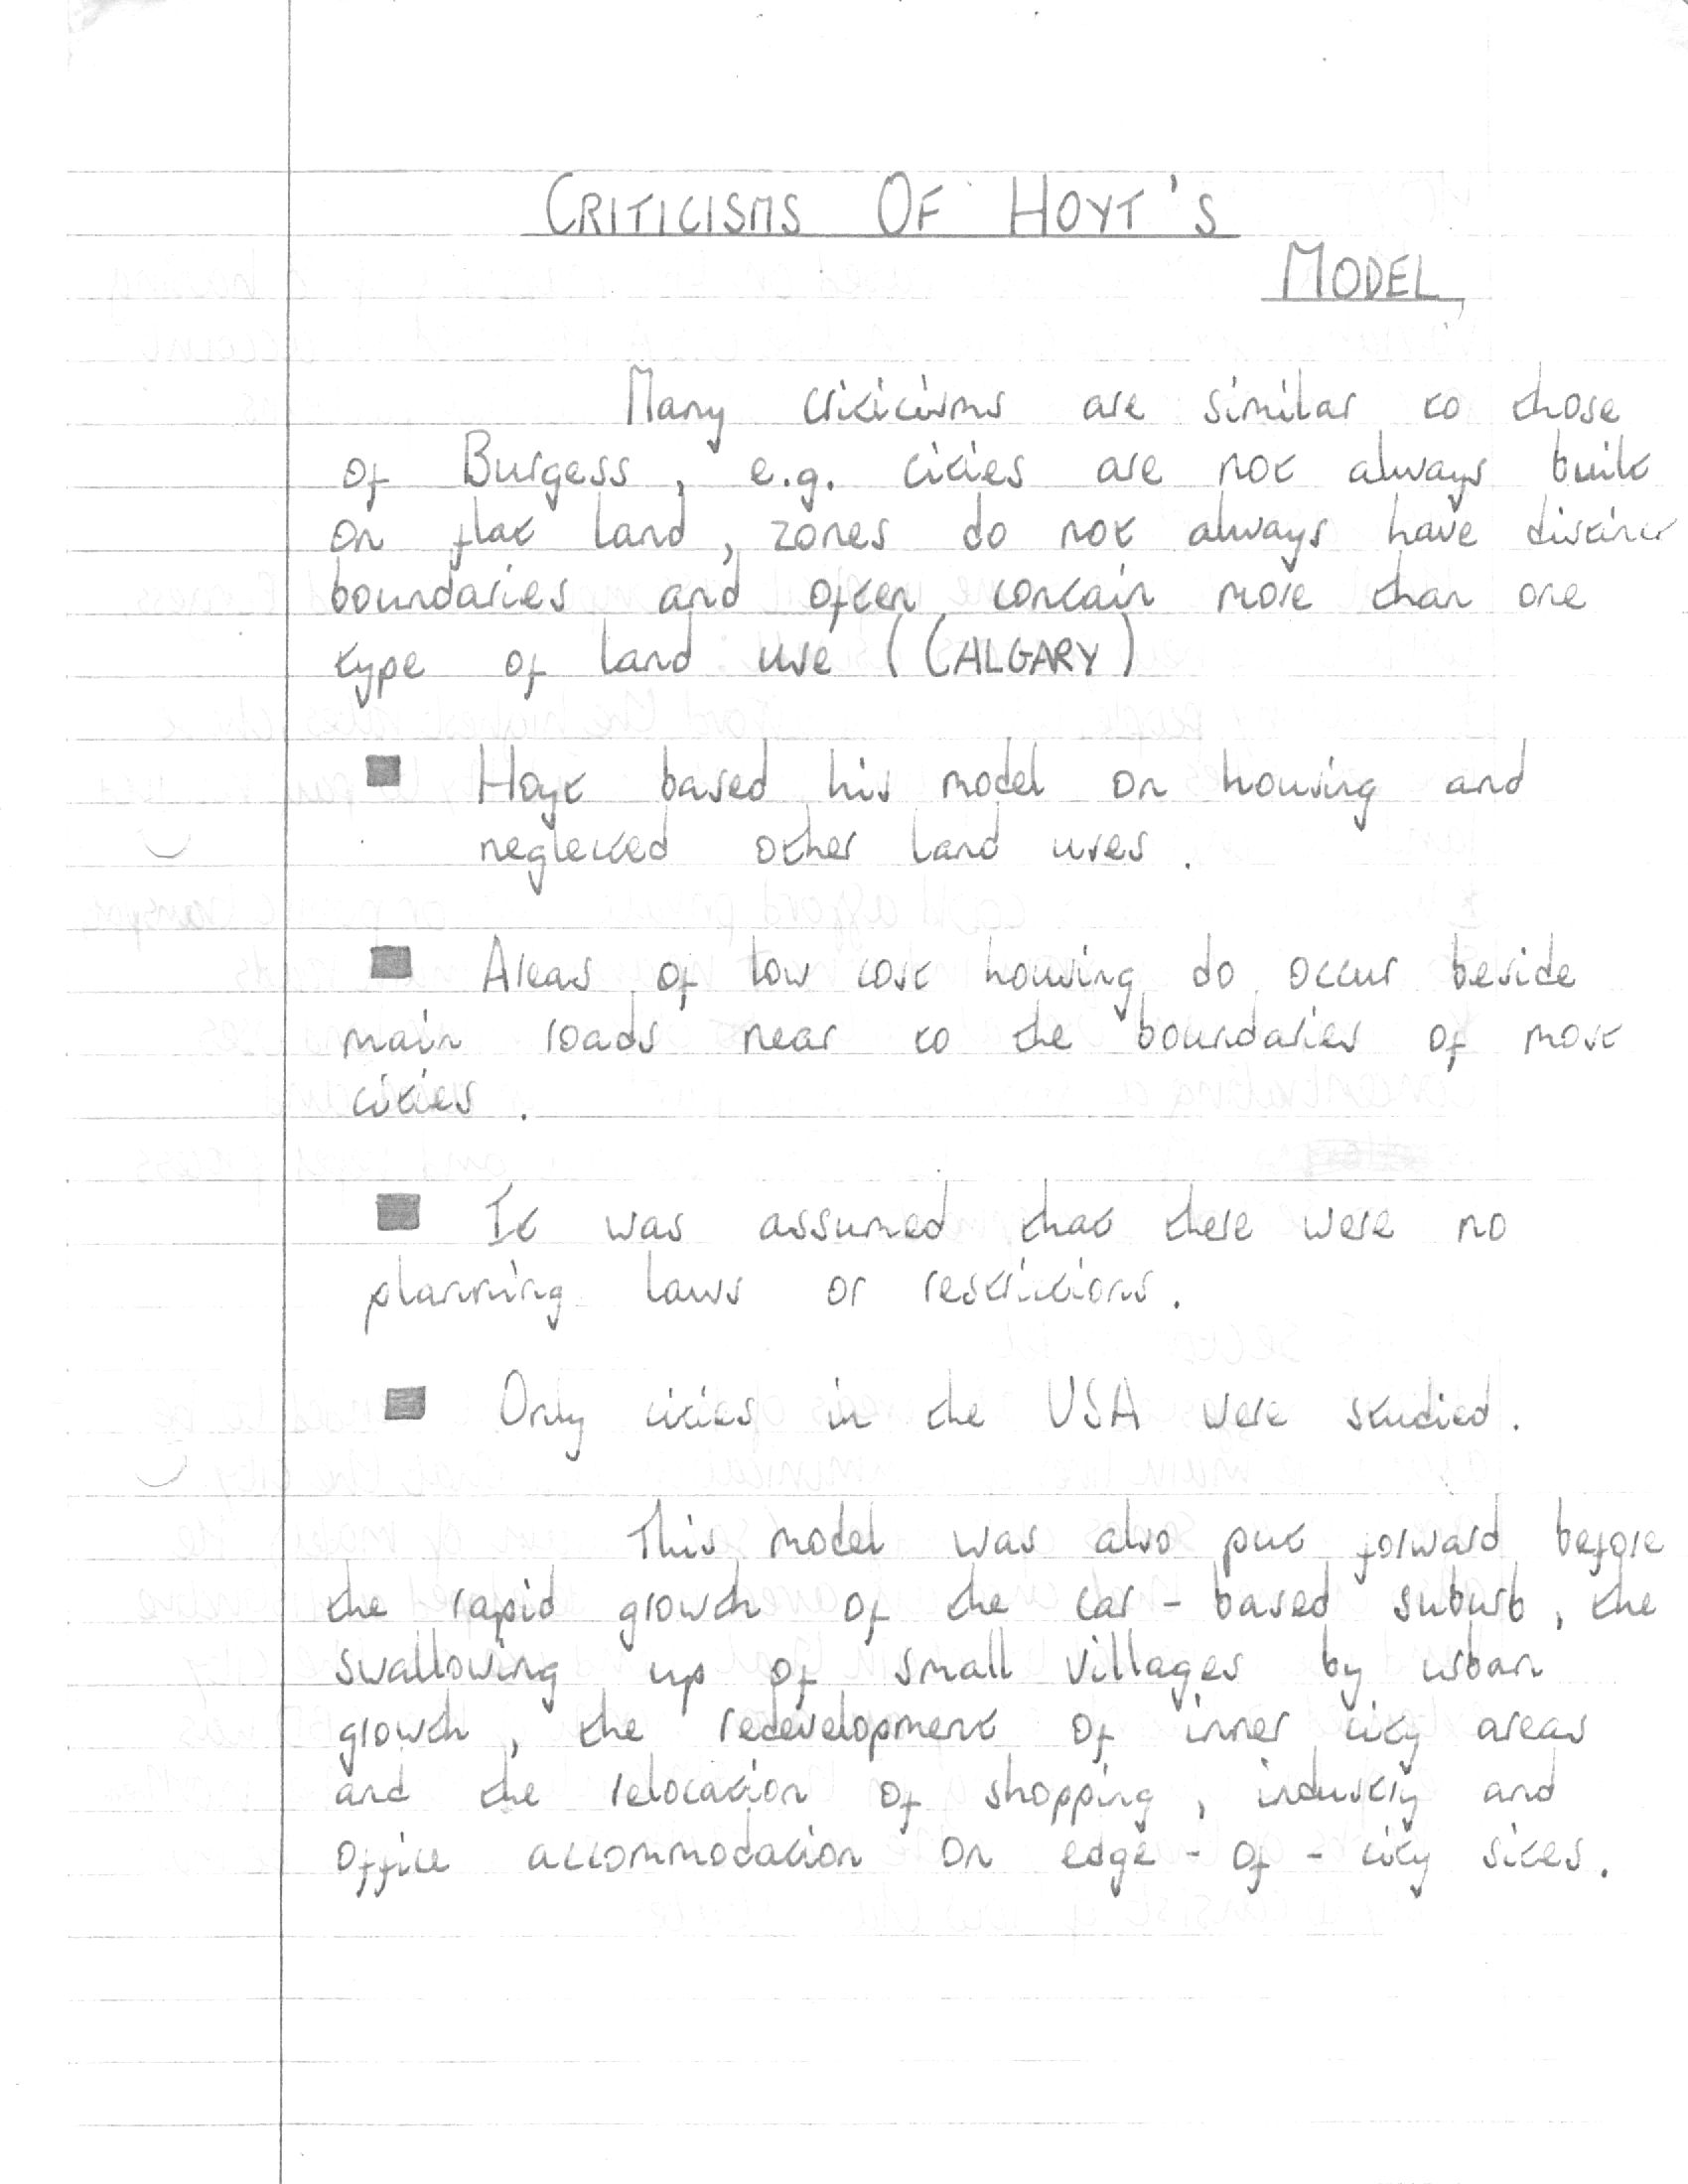 CRITICISMS OF HOYT'S
MODEL
Many criticisms are similar to those
of Burgess, e.g. cities are not always built
on flat land, zones do not always have distinct
boundaries and often contain more than one
type of land use (CALGARY)
■ Hoyt based his model on housing and
neglected other land uses.
■ Areas of low cost housing do occur beside
main roads near to the boundaries of most
cities.
■ It was assumed that there were no
planning laws or restrictions.
■ Only cities in the USA were studied.
This model was also put forward before
the rapid growth of the car-based suburb, the
swallowing up of small villages by urban
growth, the redevelopment of inner city areas
and the relocation of shopping, industry and
office accommodation on edge-of-city sites.